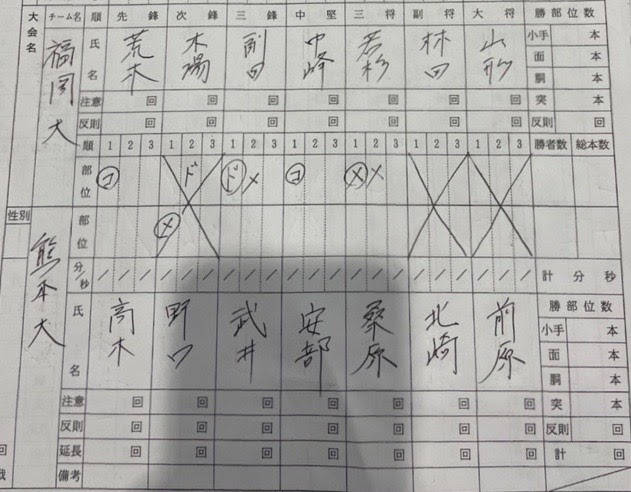 大会名 チーム名 順 先鋒 次鋒 三鋒 中堅 三将 副将 大将 勝部位数
福岡大 氏名 荒木 木場 副田 中峰 若杉 林田 山形 小手 本
面 本
胴 本
注意 回 回 回 回 回 回 回 突 本
反則 回 回 回 回 回 回 回 反則 回
順 1 2 3 1 2 3 1 2 3 1 2 3 1 2 3 1 2 3 1 2 3 勝者数 総本数
部位 コ ド ド メ コ メ メ
性別 部位 メ
分/秒 / / / / / / / / / / / / / / / / / / / / / 計 分 秒
熊本大 氏名 高木 野口 武井 安部 桑原 北崎 前原 勝部位数
小手 本
面 本
胴 本
注意 回 回 回 回 回 回 回 突 本
反則 回 回 回 回 回 回 回 反則 回
回 延長 回 回 回 回 回 回 回 計 回
備考